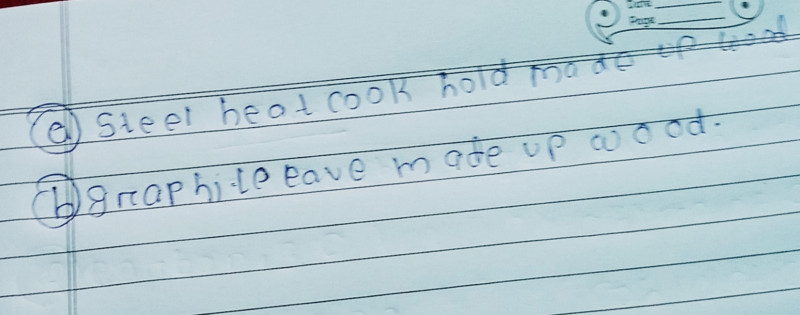 Date
Page
(a) Steel heat cook hold made up wood
(b) graphite eave made up wood.